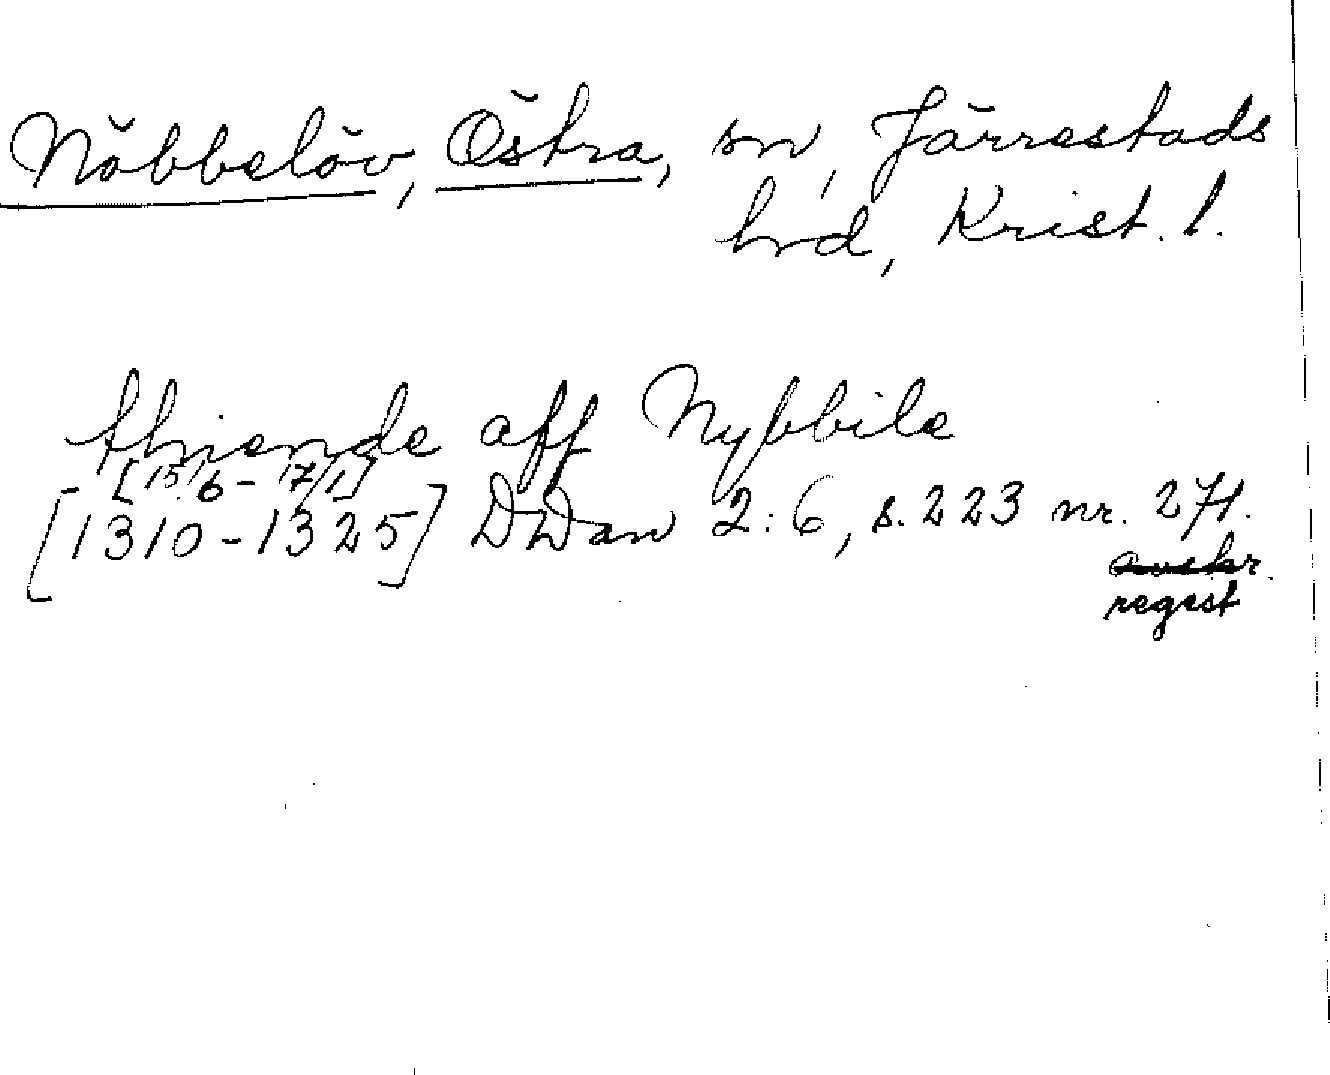 Nöbbelöv, Östra, sn, Järrestads
hrd, Krist. l.
thiende aff Nybbile
[15/6 - 17/1]
[1310-1325] DDan 2:6, s. 223 nr. 271.
avskr.
regest